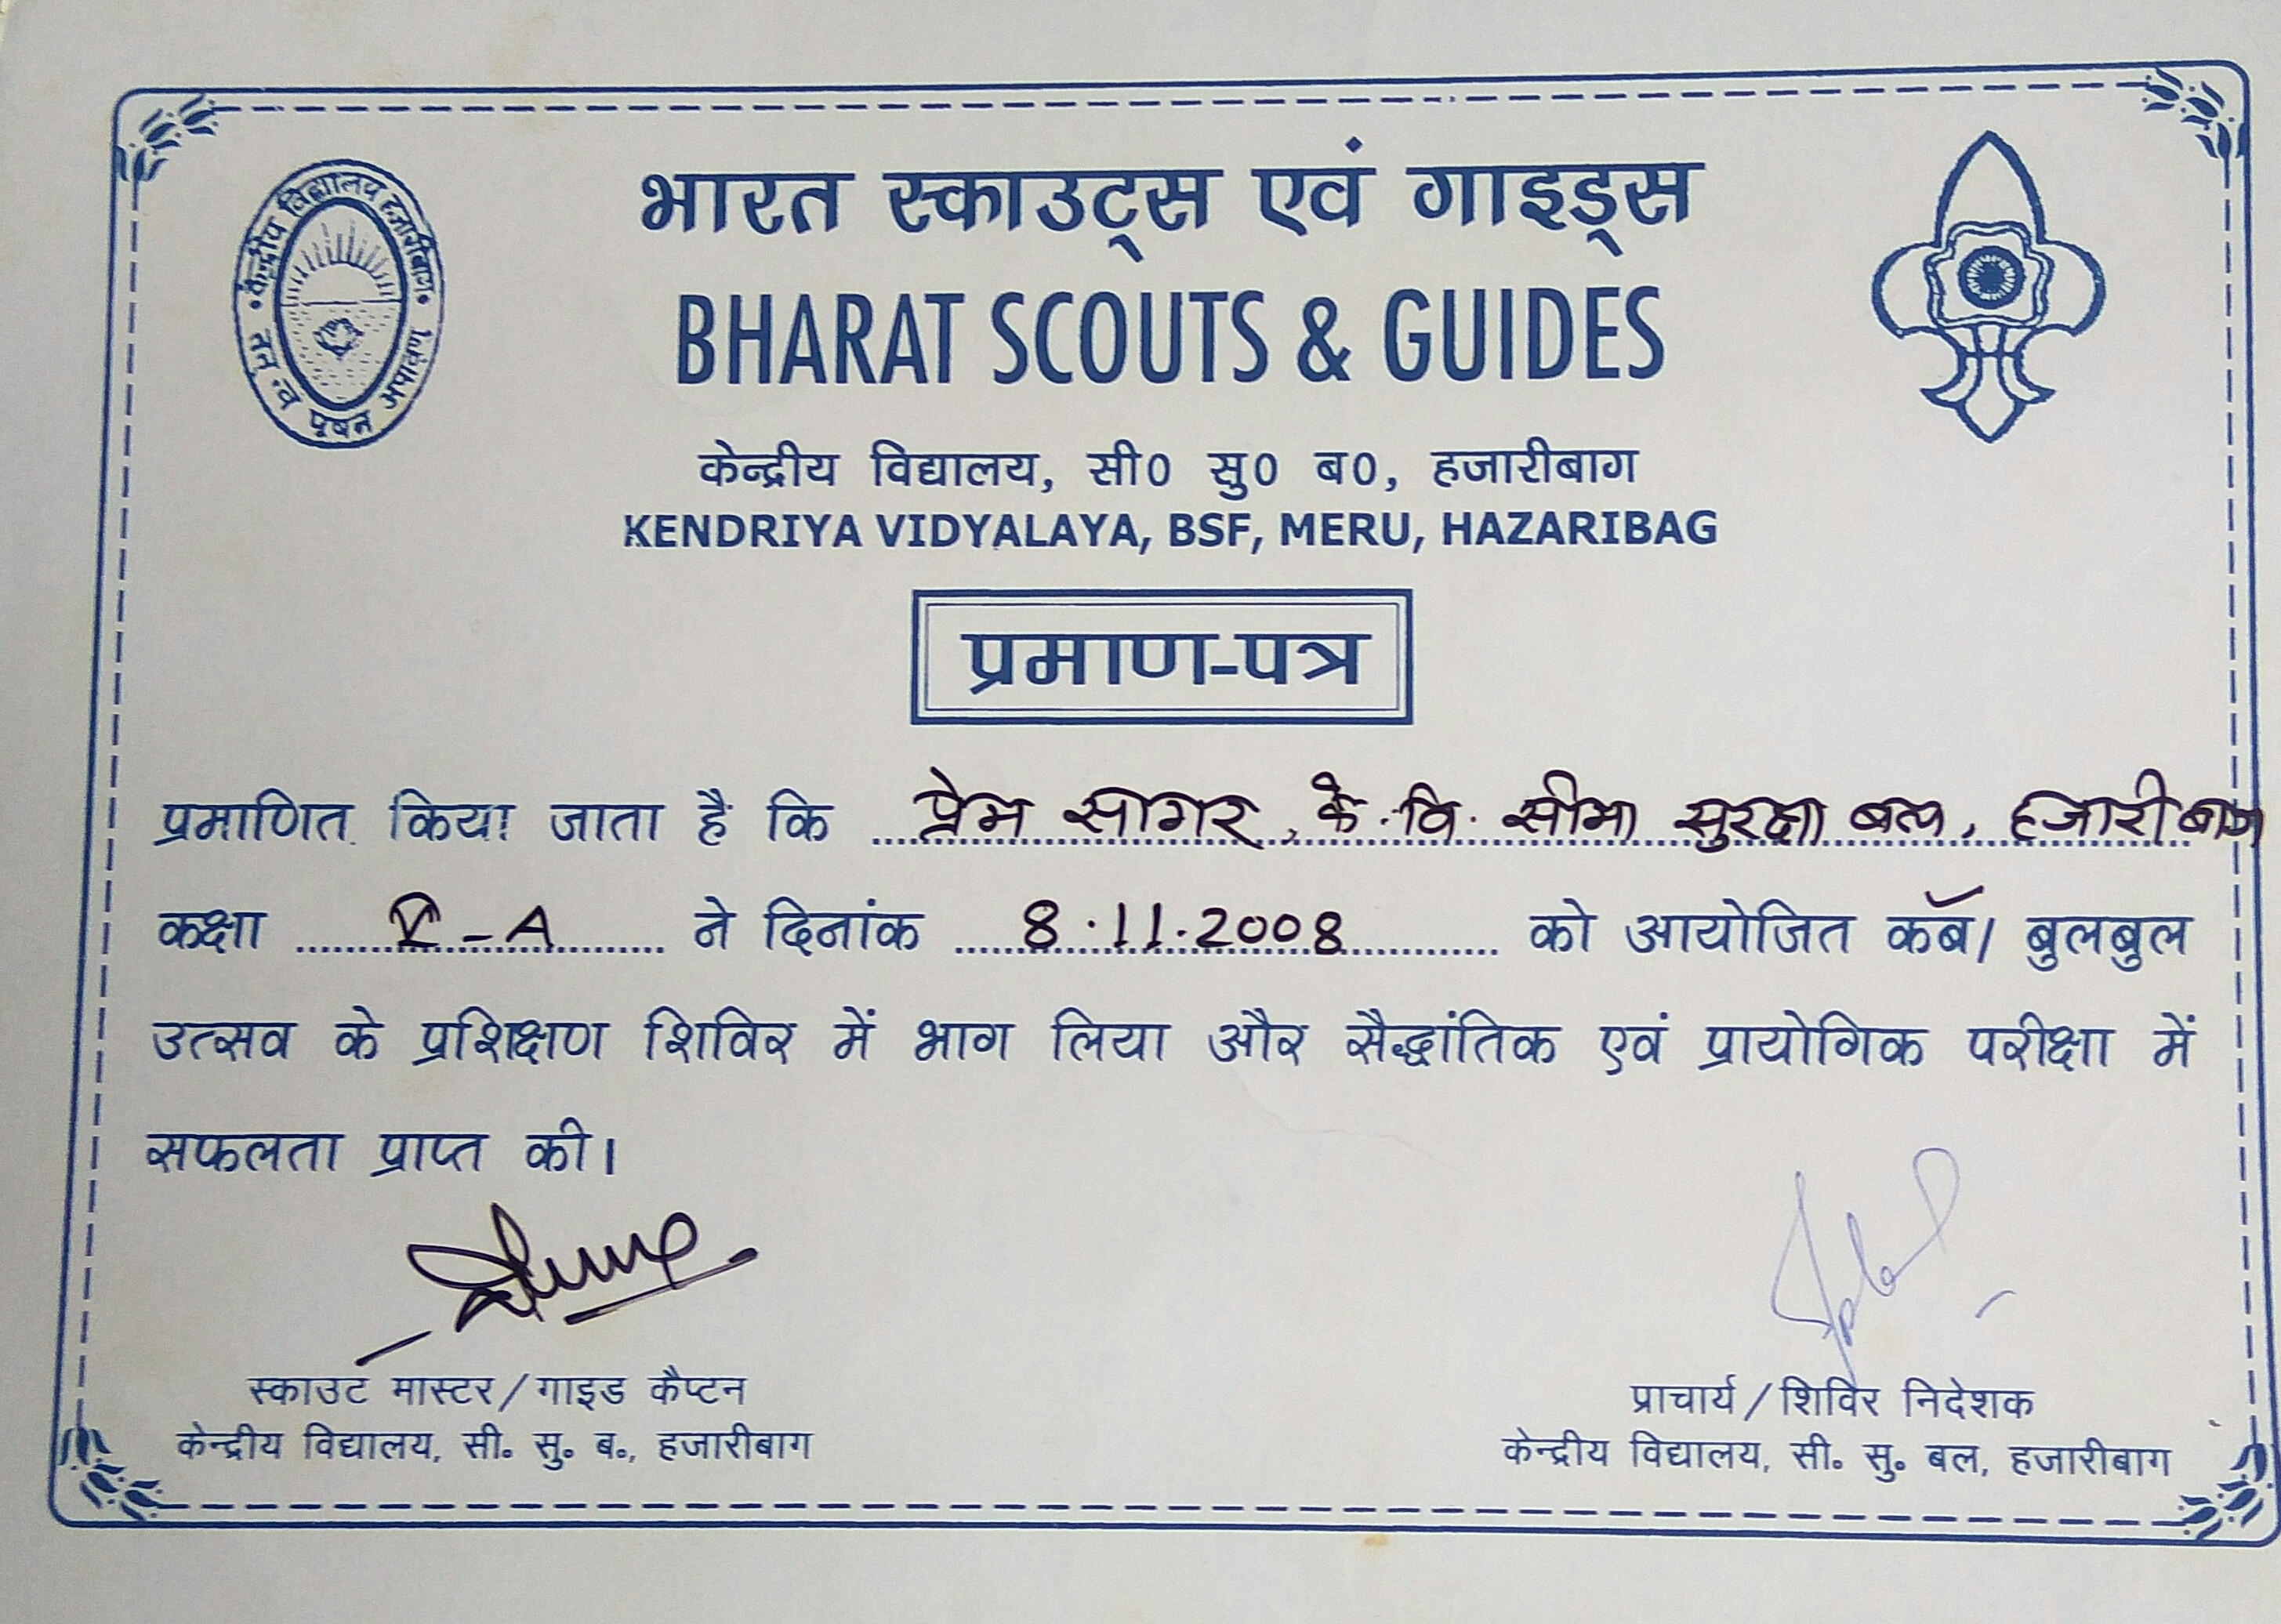 भारत स्काउट्स एवं गाइड्स
BHARAT SCOUTS & GUIDES
केन्द्रीय विद्यालय हजारीबाग
तत् त्वं पूषन अपावृणु
केन्द्रीय विद्यालय, सी0 सु0 ब0, हजारीबाग
KENDRIYA VIDYALAYA, BSF, MERU, HAZARIBAG
प्रमाण-पत्र
प्रमाणित किया जाता है कि प्रेम सागर, के.वि. सीमा सुरक्षा बल, हजारीबाग
कक्षा -A ने दिनांक 8.11.2008 को आयोजित कॅब/ बुलबुल
उत्सव के प्रशिक्षण शिविर में भाग लिया और सैद्धांतिक एवं प्रायोगिक परीक्षा में
सफलता प्राप्त की।
स्काउट मास्टर/गाइड कैप्टन
केन्द्रीय विद्यालय, सी॰ सु॰ ब॰, हजारीबाग
प्राचार्य/शिविर निदेशक
केन्द्रीय विद्यालय, सी॰ सु॰ बल, हजारीबाग